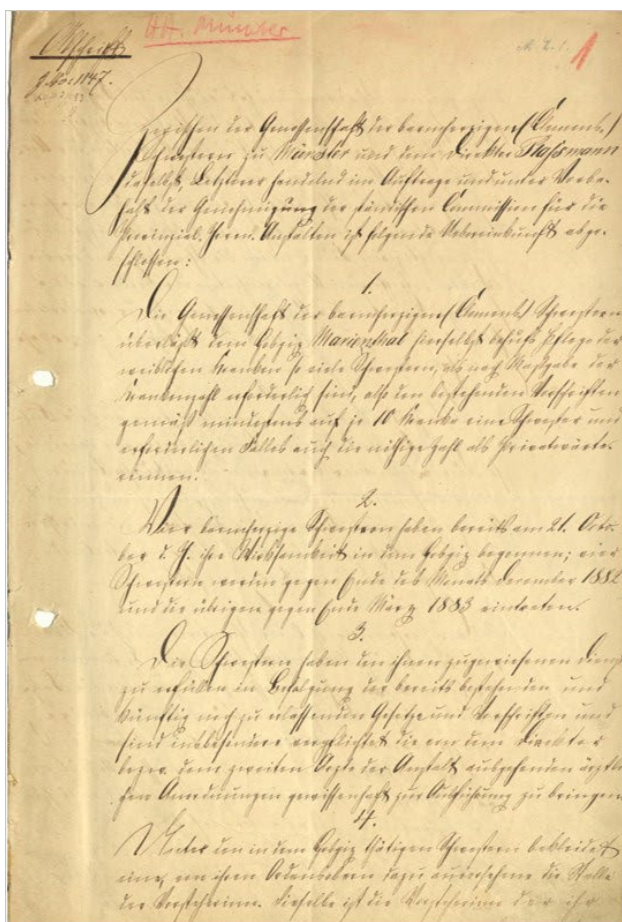 Abschrift
AA. Münster
J. No: 1147.
Zwischen der Genossenschaft der barmherzigen (Clemens-)
Schwestern zu Münster und dem Direktor
daselbst, Letzterer handelnd im Auftrage und unter Vorbe-
halt der Genehmigung der ständischen Commission für die
Provinzial-Irren-Anstalten ist folgende Uebereinkunft abge-
schlossen:
1.
Die Genossenschaft der barmherzigen (Clemens) Schwestern
überläßt dem Hospiz Marienthal hierselbst behufs Pflege der
weiblichen Kranken so viele Schwestern, als nach Maßgabe der
Krankenzahl erforderlich sind, also den bestehenden Vorschriften
gemäß mindestens auf je 10 Kranke eine Schwester und
erforderlichen Falles auch die nöthige Zahl als Privatwärte-
rinnen.
2.
Vier barmherzige Schwestern haben bereits am 21. Octo-
ber d. J. ihre Wirksamkeit in dem Hospiz begonnen; vier
Schwestern werden gegen Ende des Monats December 1882
und die übrigen gegen Ende März 1883 eintreten.
3.
Die Schwestern haben den ihnen zugewiesenen Dienst
zu erfüllen in Befolgung der bereits bestehenden und
künftig noch zu erlassenden Gesetze und Vorschriften und
sind insbesondere verpflichtet die von dem Direktor
bezw. dem zweiten Arzte der Anstalt ausgehenden ärztli-
chen Anordnungen gewissenhaft zur Ausführung zu bringen.
4.
Unter den in dem Hospiz thätigen Schwestern bekleidet
eine, von ihren Ordensobern dazu ausersehene die Stelle
der Vorsteherin. Dieselbe ist die Vorsteherin der ihr